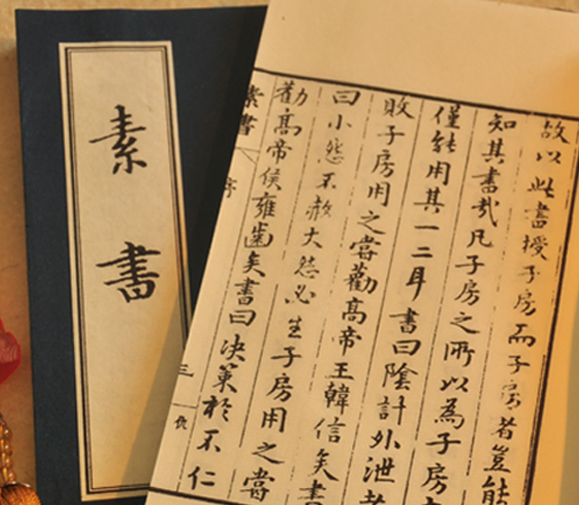 素書
故以此書授子房而子房者豈能
知其書哉凡子房之所以為子房
僅能用其一二耳書曰陰計外泄者
敗子房用之嘗勸高帝王韓信矣書
曰小怨不赦大怨必生子房用之嘗
勸高帝侯雍齒矣書曰決策於不仁
素書
序
三